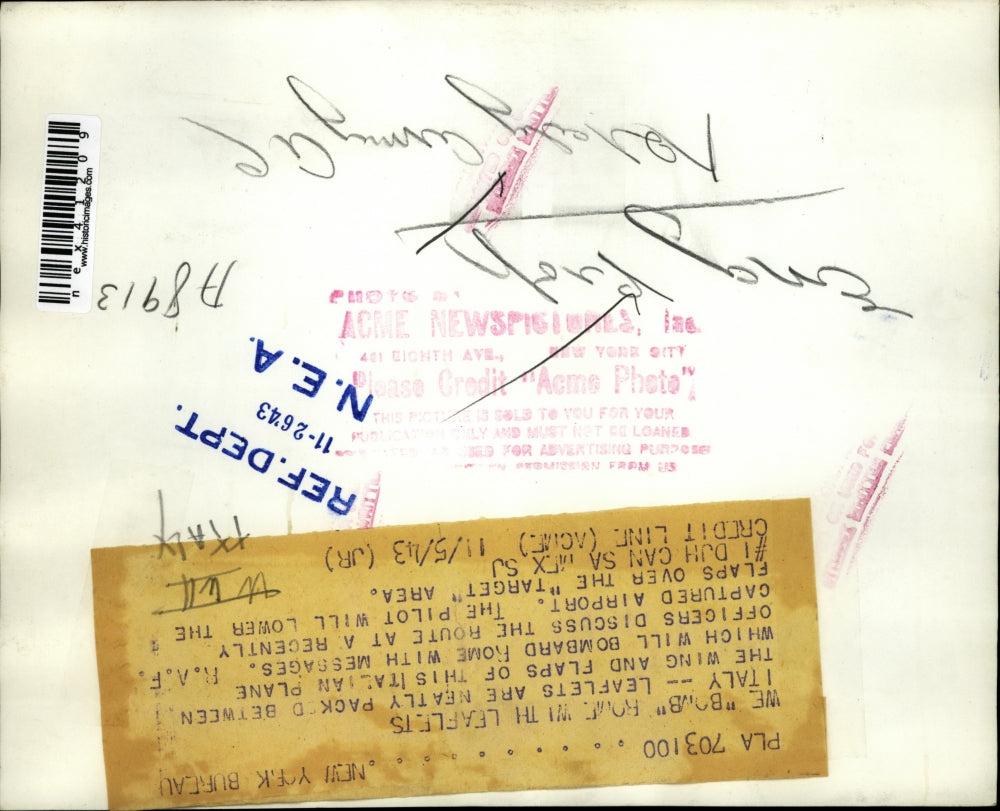 PLA 703100 . . . . . . . . . . NEW YORK BUREAU
WE "BOMB" ROME WITH LEAFLETS
ITALY -- LEAFLETS ARE NEATLY PACKED BETWEEN
THE WING AND FLAPS OF THIS ITALIAN PLANE
WHICH WILL BOMBARD ROME WITH MESSAGES. R.A.F.
OFFICERS DISCUSS THE ROUTE AT A RECENTLY
CAPTURED AIRPORT. THE PILOT WILL LOWER THE
FLAPS OVER THE "TARGET" AREA.
#1 DJH CAN SA MEX SJ
CREDIT LINE (ACME) 11/5/43 (JR)
WWII
ITALY
REF. DEPT.
11-26 43
N.E.A.
PHOTO BY
ACME NEWSPICTURES, Inc.
461 EIGHTH AVE., NEW YORK CITY
Please Credit "Acme Photo"
THIS PICTURE IS SOLD TO YOU FOR YOUR
PUBLICATION ONLY AND MUST NOT BE LOANED
USED FOR ADVERTISING PURPOSES
PERMISSION FROM US
A8913
nex41209
www.historicimages.com